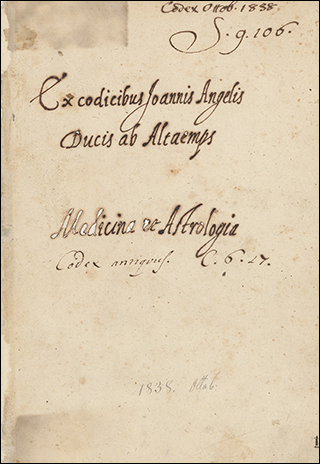 Codex Ottob. 1838.
S. 9. 106.
Ex codicibus Joannis Angelis
Ducis ab Altaemps
Medicina et Astrologia
Codex antiquus. C. 6. 17.
1838. Ottob.
1